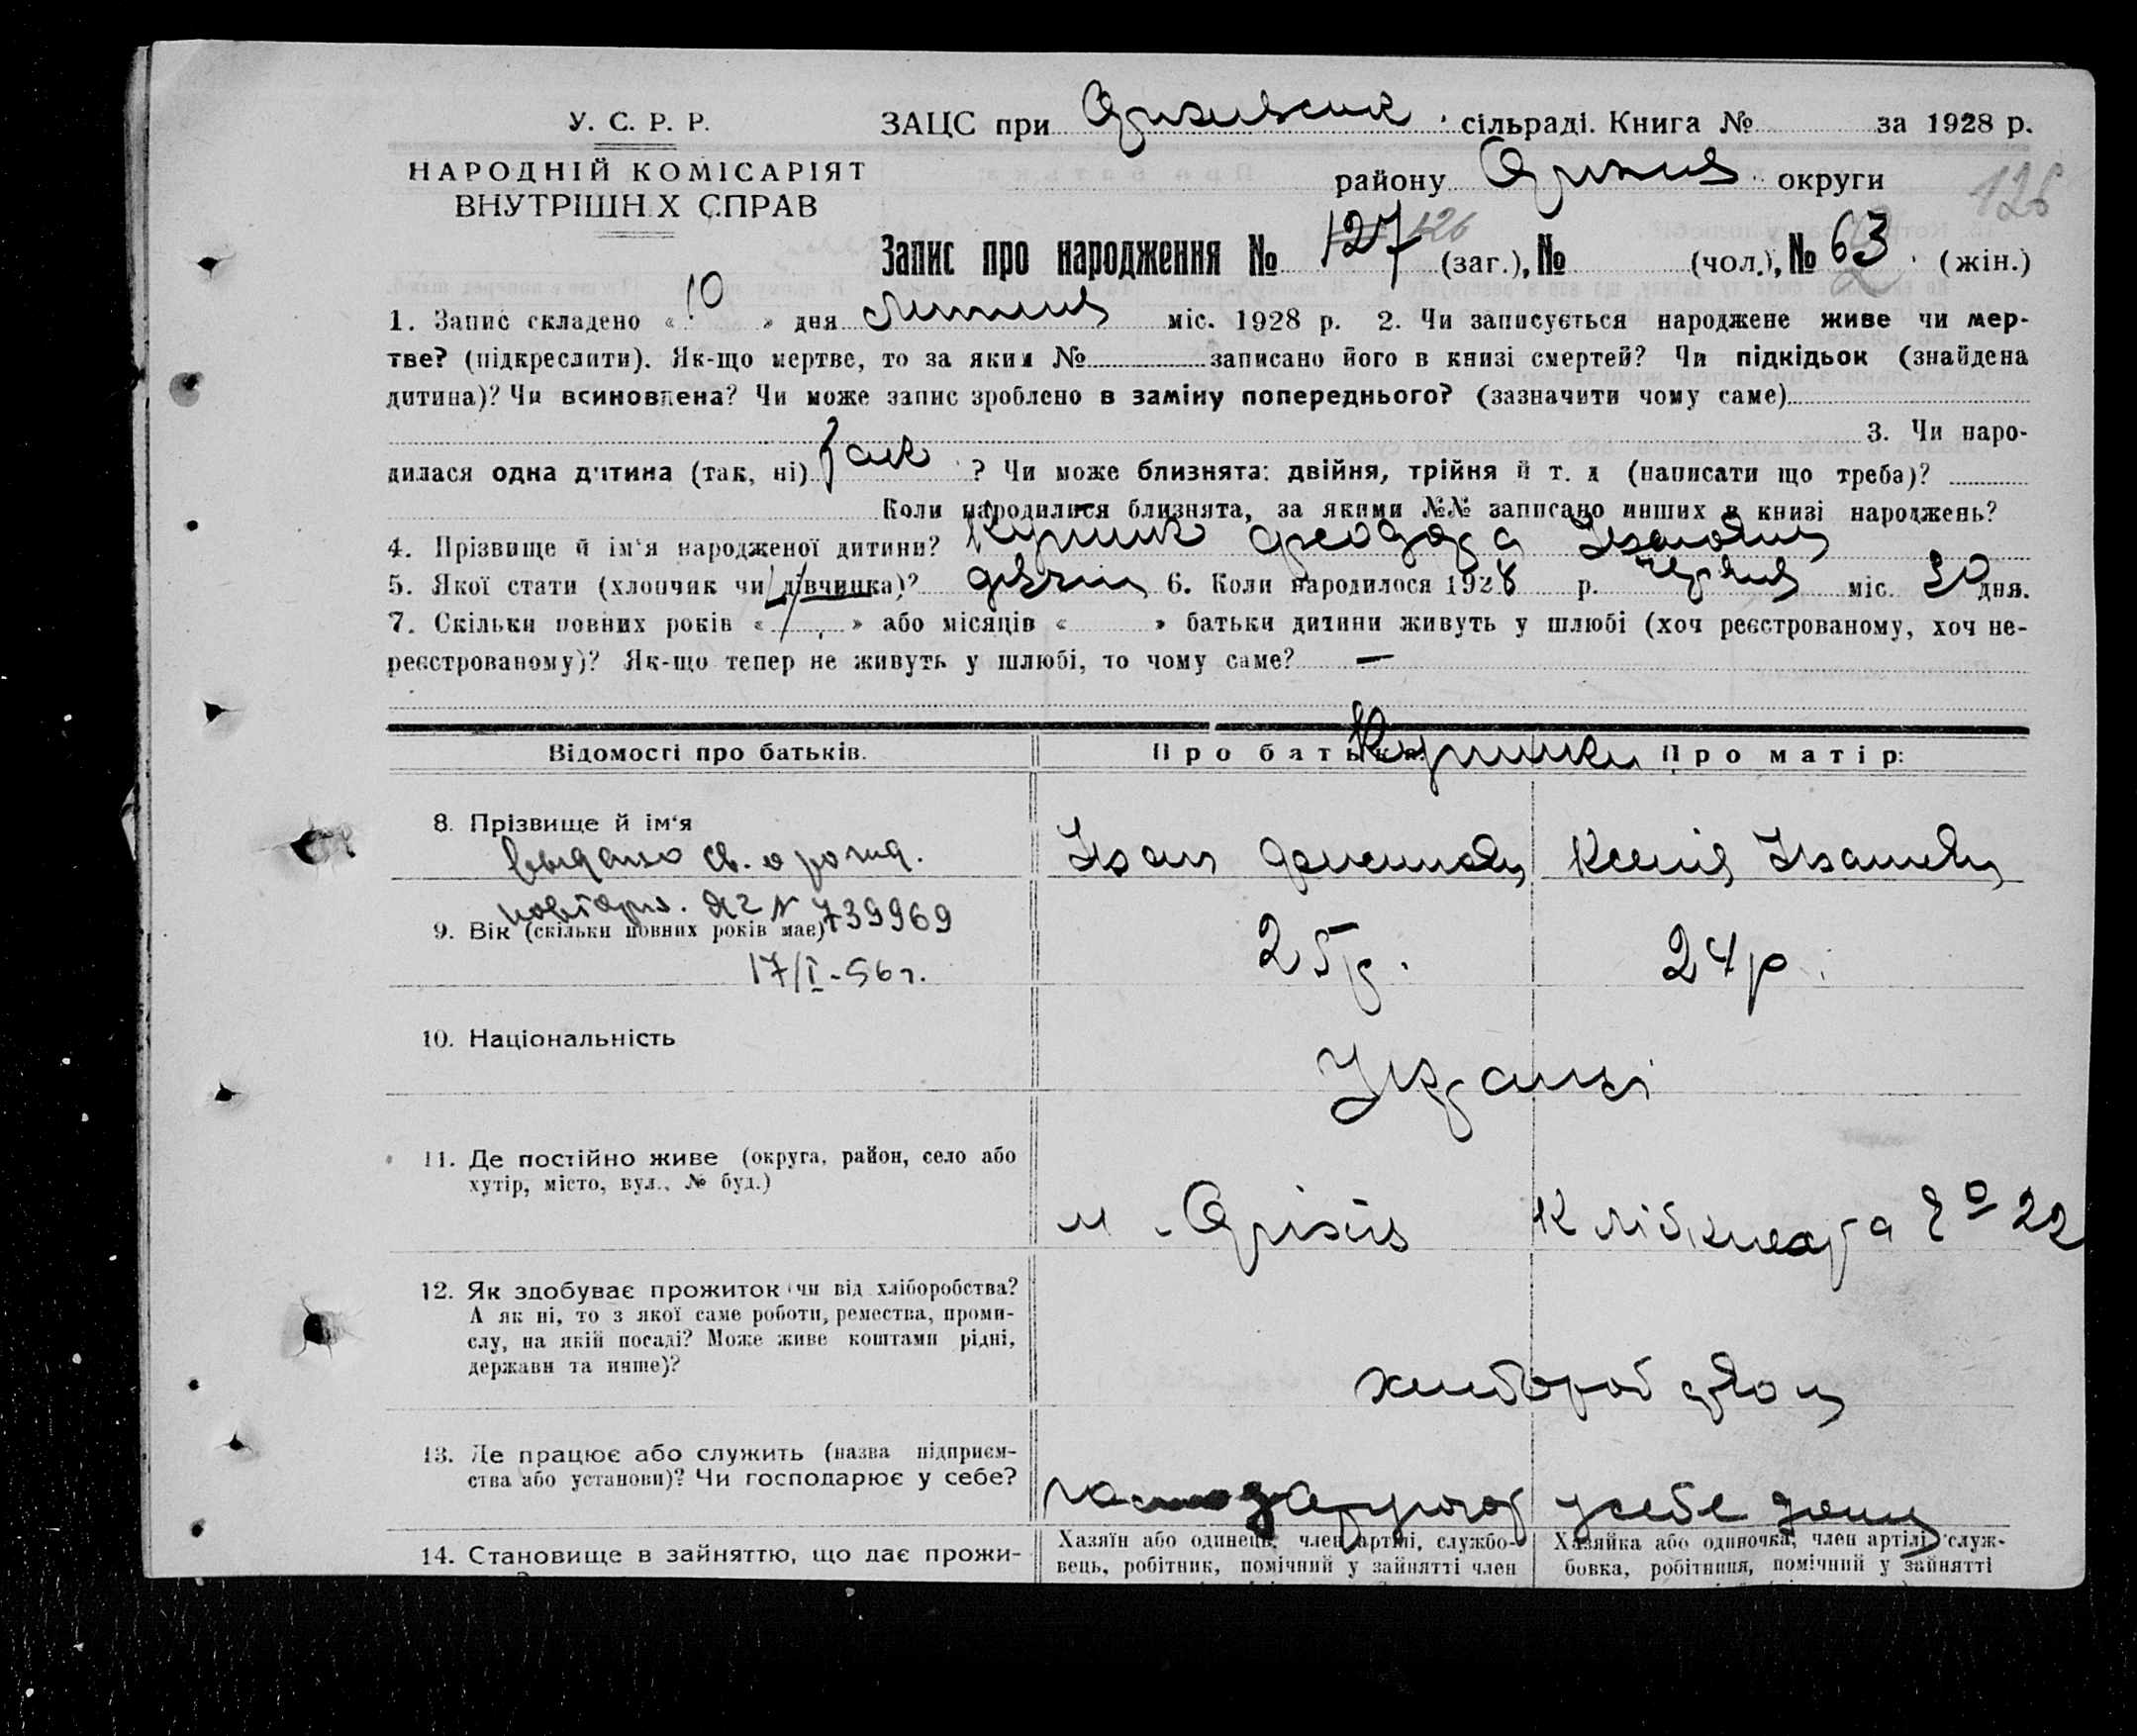 У. С. Р. Р.
НАРОДНІЙ КОМІСАРІЯТ
ВНУТРІШНІХ СПРАВ
ЗАЦС при сільраді. Книга № за 1928 р.
району округи
126
Запис про народження № 127 126 (заг.), № (чол.), № 63 (жін.)
1. Запис складено « 10 » дня липня міс. 1928 р. 2. Чи записується народжене живе чи мер-
тве? (підкреслити). Як-що мертве, то за яким № записано його в книзі смертей? Чи підкідьок (знайдена
дитина)? Чи всиновлена? Чи може запис зроблено в заміну попереднього? (зазначити чому саме)
3. Чи наро-
дилася одна дитина (так, ні) так ? Чи може близнята: двійня, трійня й т. д (написати що треба)?
Коли народилися близнята, за якими №№ записано инших в книзі народжень?
4. Прізвище й ім'я народженої дитини? Феодора Ивановна
5. Якої стати (хлопчик чи дівчинка)? 6. Коли народилося 1928 р. червня міс. 30 дня.
7. Скільки повних років « » або місяців « » батьки дитини живуть у шлюбі (хоч реєстрованому, хоч не-
реєстрованому)? Як-що тепер не живуть у шлюбі, то чому саме? —
Відомості про батьків. Про батька: Про матір:
8. Прізвище й ім'я Іван Ксенія Ивановна
выдано св. о рожд.
повторн. № 739969
9. Вік (скільки повних років має) 25 р. 24 р.
17/I-56 г.
10. Національність Українці
11. Де постійно живе (округа, район, село або
хутір, місто, вул., № буд.)
м. Оріхів К Лібкнехта 22
12. Як здобуває прожиток (чи від хліборобства?
А як ні, то з якої саме роботи, ремества, проми-
слу, на якій посаді? Може живе коштами рідні,
держави та инше)?
13. Де працює або служить (назва підприєм-
ства або установи)? Чи господарює у себе?
у себе дома
14. Становище в зайняттю, що дає прожи-
Хазяїн або одинець, член артілі, службо-
вець, робітник, помічний у зайнятті член
Хазяйка або одиночка, член артілі, служ-
бовка, робітниця, помічний у зайнятті